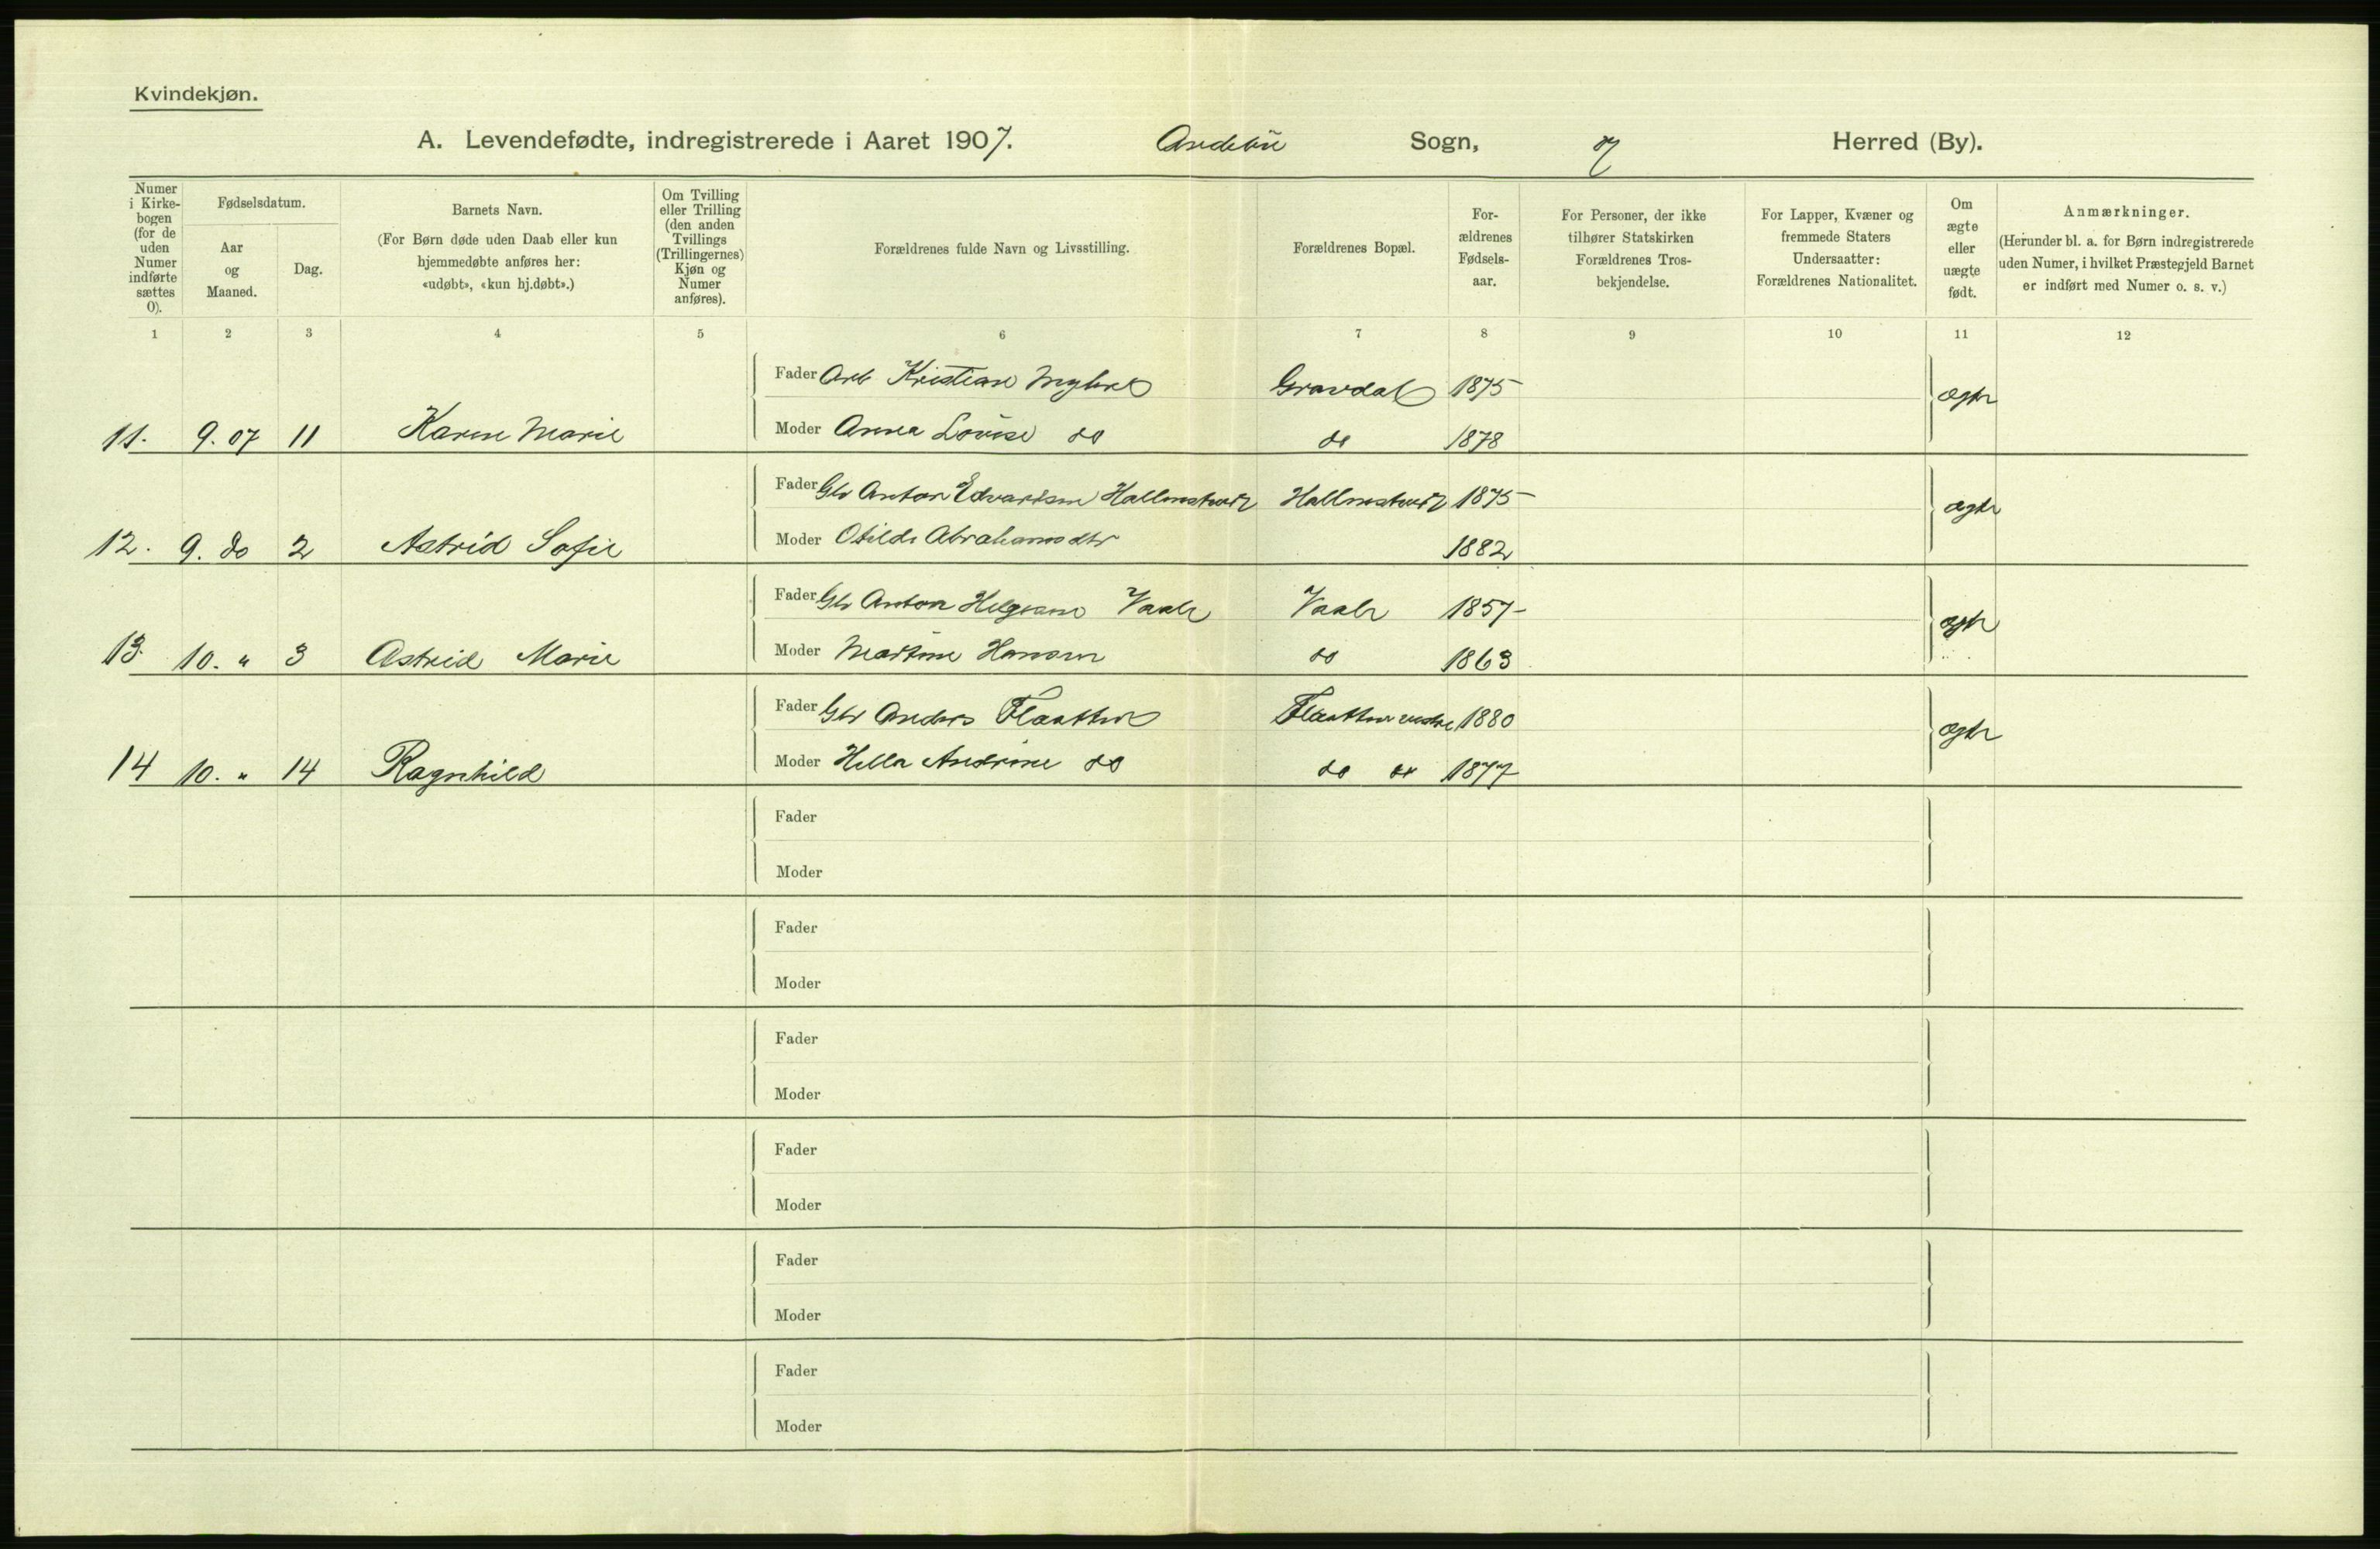 Kvindekjøn.
A. Levendefødte, indregistrerede i Aaret 1907. Andebu Sogn, Herred (By).
Numer i Kirke-bogen (for de uden Numer indførte sættes 0).
Fødselsdatum.
Aar og Maaned.
Dag.
Barnets Navn.
(For Børn døde uden Daab eller kun hjemmedøbte anføres her: «udøbt», «kun hj.døbt».)
Om Tvilling eller Trilling (den anden Tvillings (Trillingernes) Kjøn og Numer anføres).
Forældrenes fulde Navn og Livsstilling.
Forældrenes Bopæl.
For-ældrenes Fødsels-aar.
For Personer, der ikke tilhører Statskirken Forældrenes Tros-bekjendelse.
For Lapper, Kvæner og fremmede Staters Undersaatter: Forældrenes Nationalitet.
Om ægte eller uægte født.
Anmærkninger.
(Herunder bl. a. for Børn indregistrerede uden Numer, i hvilket Præstegjeld Barnet er indført med Numer o. s. v.)
1 2 3 4 5 6 7 8 9 10 11 12
Fader Arb Kristian Myhre Gravdal 1875 ægte
11. 9. 07 11 Karen Marie Moder Anna Lovise do do 1878
Fader Gb Anton Edvardsen Hallenstvedt Hallenstvedt 1875 ægte
12. 9. do 2 Astrid Sofie Moder Otilde Abrahamsdtr 1882
Fader Gb Anton Helgesen Vaale Vaale 1857 ægte
13. 10. " 3 Astrid Marie Moder Martine Hansen do 1863
Fader Gb Anders Flaatten Flaatten vestre 1880 ægte
14 10. " 14 Ragnhild Moder Hella Andrine do do do 1877
Fader
Moder
Fader
Moder
Fader
Moder
Fader
Moder
Fader
Moder
Fader
Moder